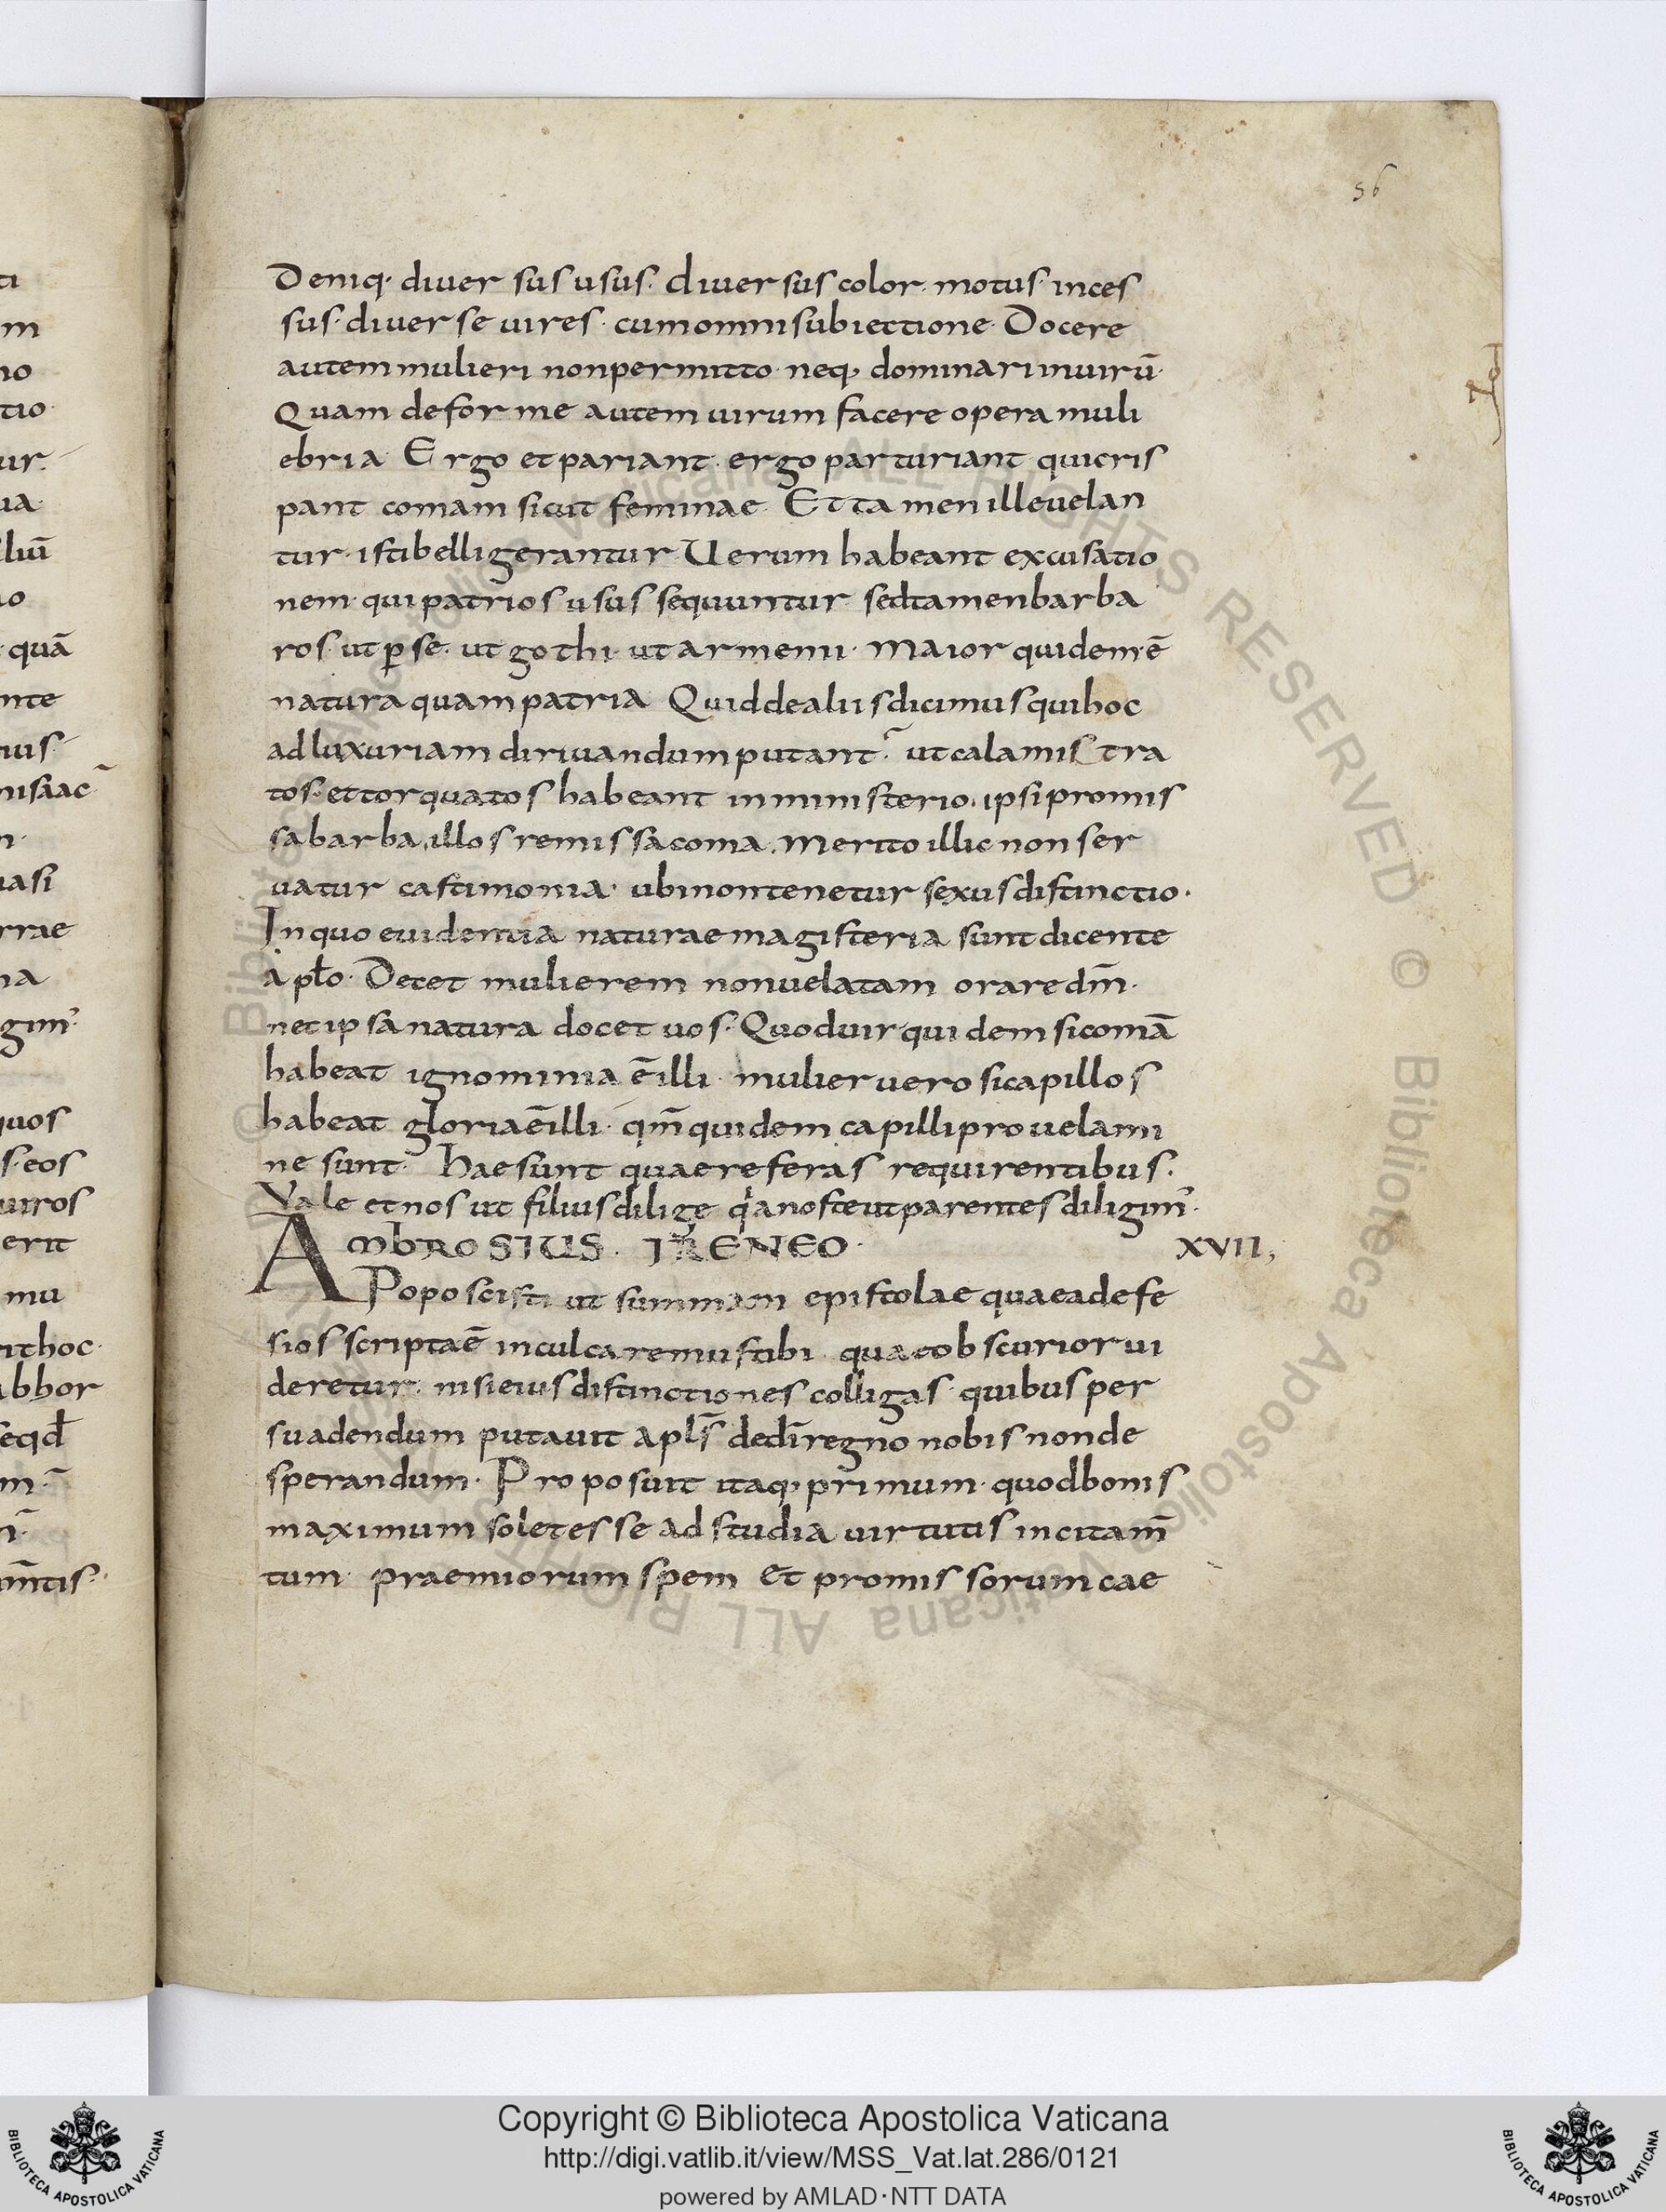 56
Deniq· diuersus usus· diuersus color· motus· inces
sus· diuerse uires· cum omni subiectione· Docere
autem mulieri non permitto· neq; dominari in uirū·
Quam deforme autem uirum facere opera muli
ebria· Ergo et pariant· ergo parturiant qui cris
pant comam sicut feminae· Et tamen ille uelan
tur· isti belligerantur· Uerum habeant excusatio
nem qui patrios usus sequuntur· sed tamen barba
ros· ut ꝑse· ut gothi· ut armenii· Maior quidem ē
natura quam patria· Quid de aliis dicimus qui hoc
ad luxuriam diriuandum putant· ut calamistra
tos· et torquatos habeant in ministerio· ipsi promis
sa barba, illos remissa coma. Merito illic non ser
uatur castimonia· ubi non tenetur sexus distinctio·
In quo euidentia naturae magisteria sunt dicente
aplo· Decet mulierem non uelatam orare dm̄·
nec ipsa natura docet uos· Quod uir quidem si comā
habeat ignominia ē illi· mulier uero si capillos
habeat gloria ē illi· qm̄ quidem capilli pro uelami
ne sunt· Hae sunt quae referas requirentibus·
Vale et nos ut filius dilige qia nos te ut parentes diligim᾽·
AMBROSIUS· IRENEO· XVII,
Poposcisti ut summam epistolae quae ad efe
sios scripta ē inculcaremus tibi· quae obscurior ui
deretur· nisi eius distinctiones colligas· quibus per
suadendum putauit apls̄ de dī regno nobis non de
sperandum· Proposuit itaq; primum· quod bonis
maximum solet esse ad studia uirtutis incitam̄
tum· praemiorum spem et promissorum cae
ti
m
no
tio
ur·
ua·
liū
no
quā
nte
rius
m isaac
n·
uasi
rrae
na
gim᾽·
quos
s· eos
uiros
erit
mu
rit hoc·
abhor
seqd̄
m̄tis·
© Biblioteca Apostolica Vaticana ALL RIGHTS RESERVED © Biblioteca Apostolica Vaticana ALL RIGHTS RESERVED
Copyright © Biblioteca Apostolica Vaticana
http://digi.vatlib.it/view/MSS_Vat.lat.286/0121
powered by AMLAD·NTT DATA
BIBLIOTECA APOSTOLICA VATICANA
BIBLIOTECA APOSTOLICA VATICANA